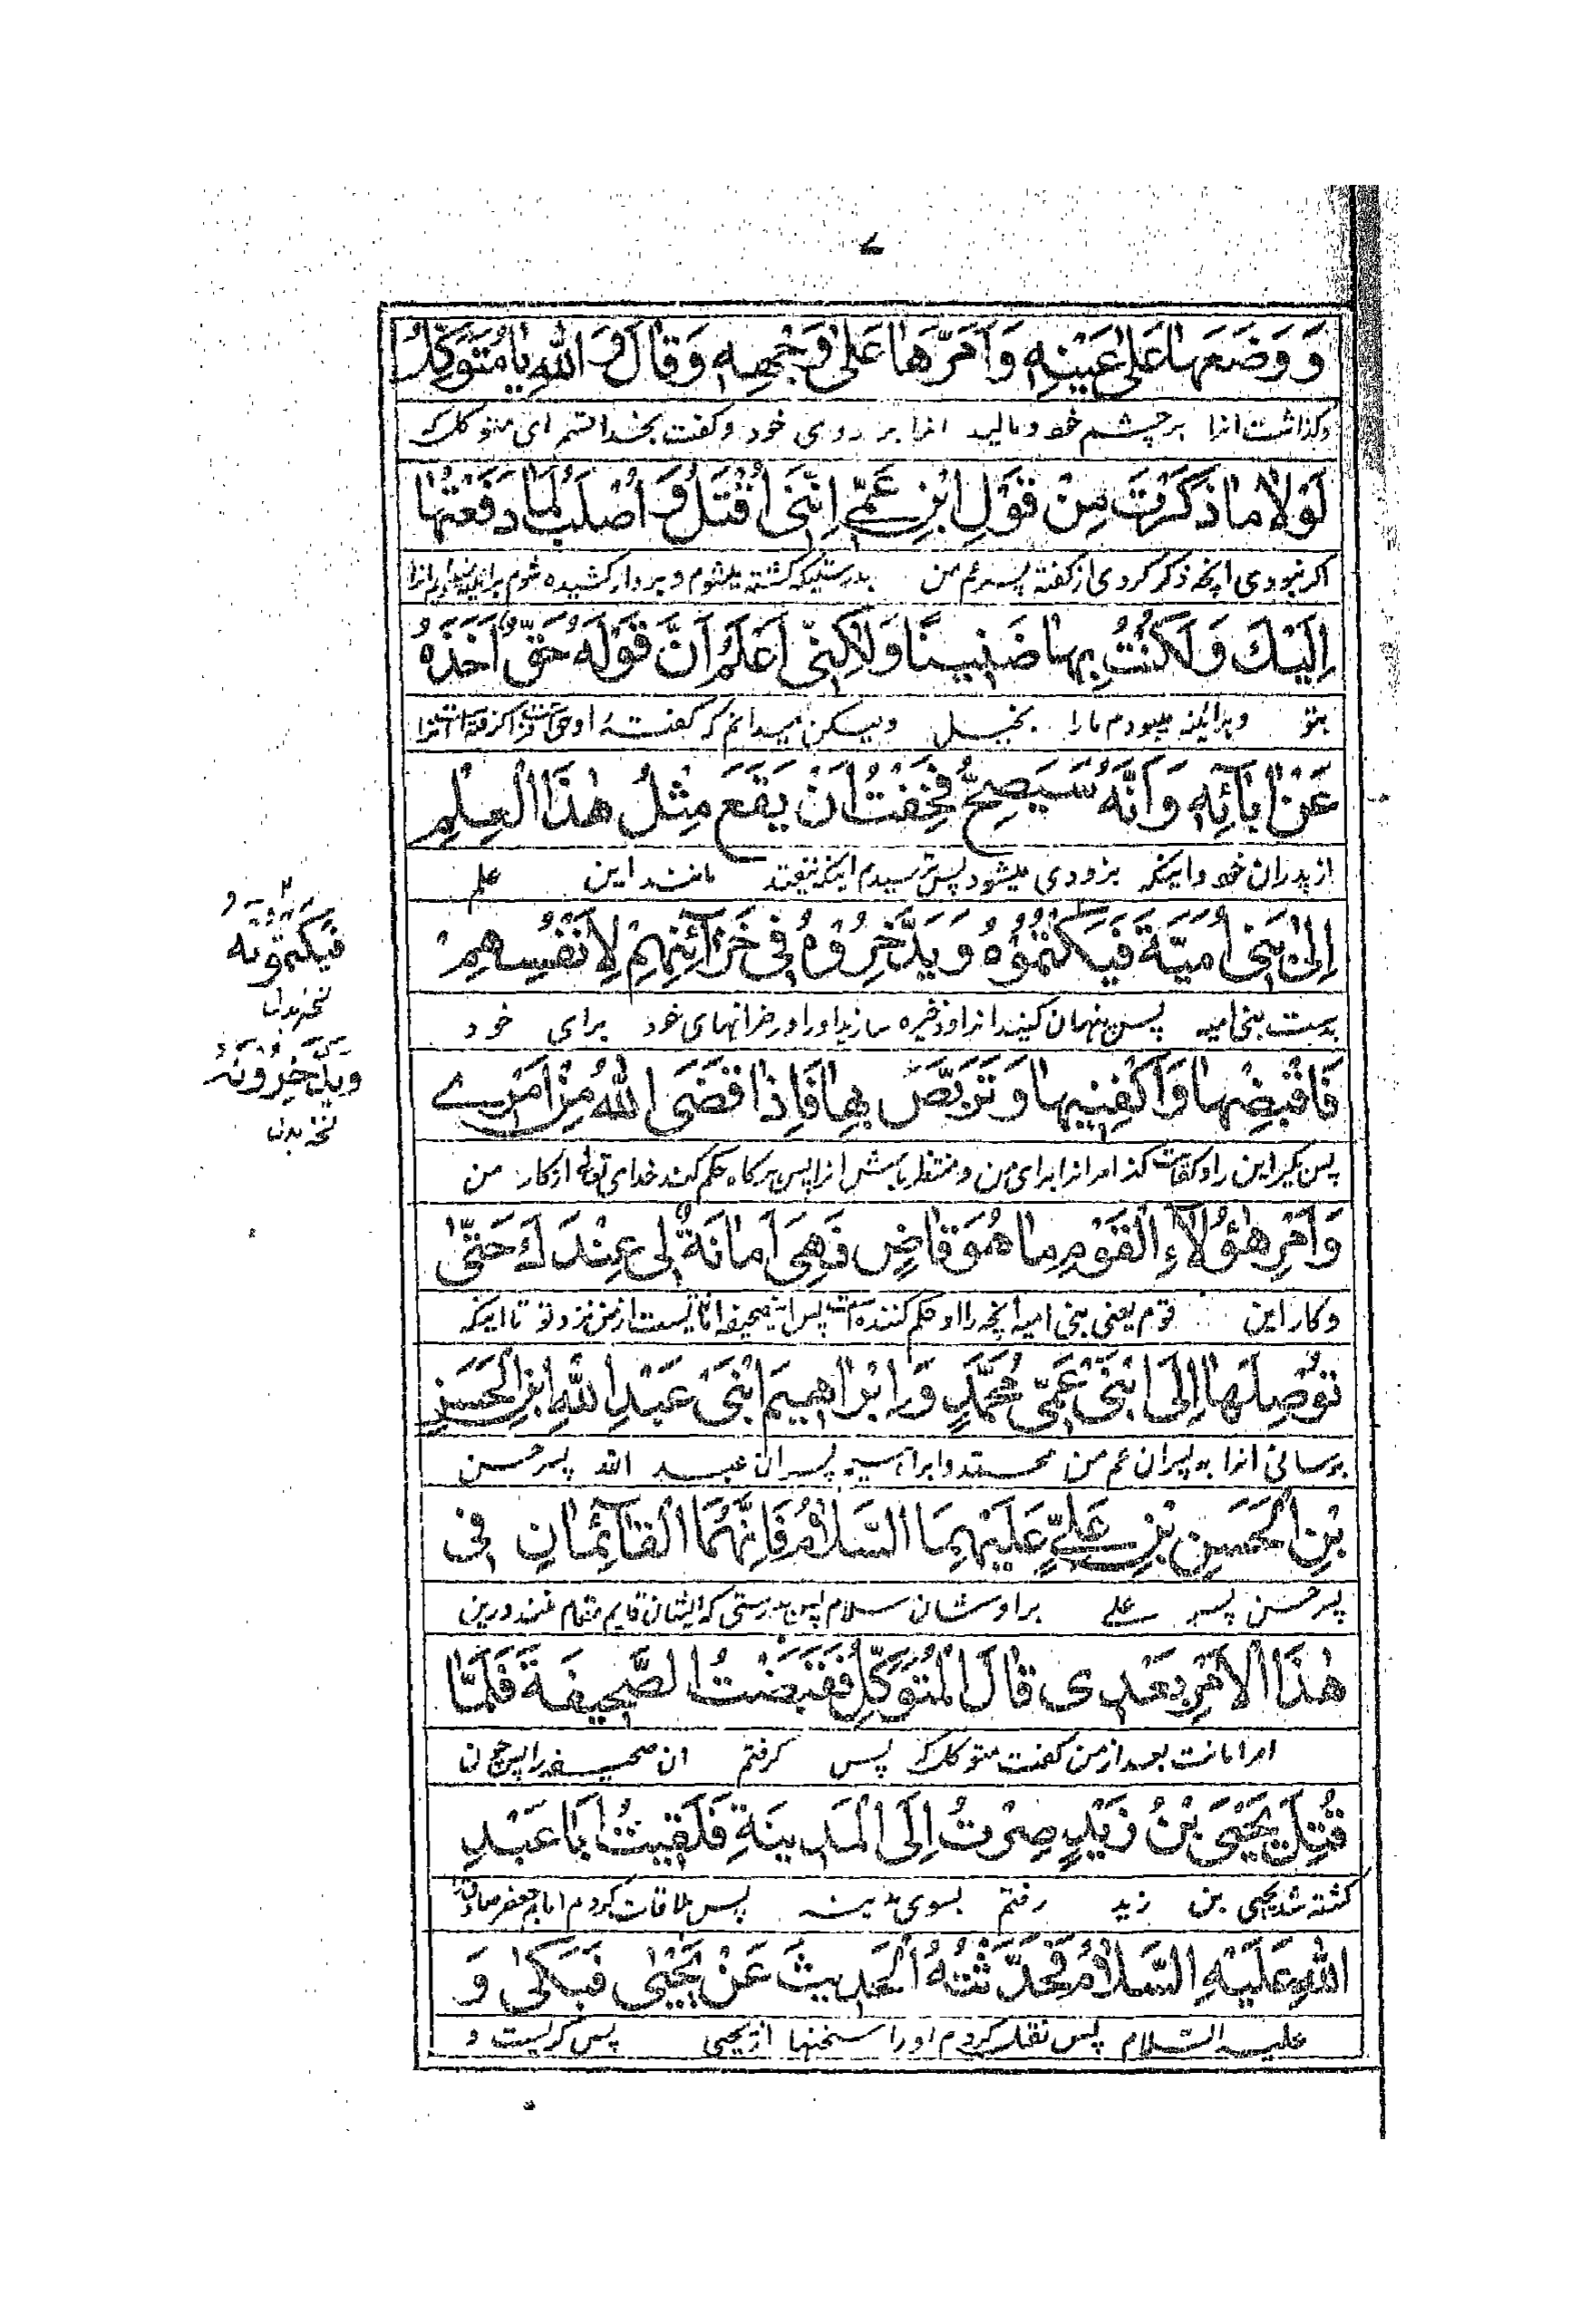 ۷
وَ وَضَعَهَا عَلىٰ عَيْنِهٖ وَ اَمَرَّهَا عَلىٰ وَجْهِهٖ وَ قَالَ وَ اللهِ يَا مُتَوَكِّلُ
وگذاشت انرا بر چشم خود و مالید انرا بر روی خود وگفت بخدا قسم ای متوکل که
لَوْلَا مَا ذَكَرْتَ مِنْ قَوْلِ ابْنِ عَمِّے اِنَّنِىْ اُقْتَلُ وَ اُصْلَبُ لَمَا دَفَعْتُهَا
اگر نبودی انچه ذکر کردی از گفته پسر عم من بدرستیکه کشته میشوم و بردار کشیده شوم
اِلَيْكَ وَ لَكُنْتُ بِهَا ضَنِيْنًا وَ لٰكِنِّىْ اَعْلَمُ اَنَّ قَوْلَهٗ حَقٌّ اَخَذَهٗ
بتو و هراینه میبودم مارا بخیل ولیکن میدانم که گفتهٔ او حق
عَنْ اٰبَآئِهٖ وَ اَنَّهٗ سَيَصِحُّ فَخِفْتُ اَنْ يَقَعَ مِثْلُ هٰذَا الْعِلْمِ
از پدران خود و اینکه بزودی میشود پس ترسیدم اینکه بیفتد مانند این علم
اِلىٰ بَنِىْ اُمَيَّةَ فَيَكْتُمُوْهُ وَ يَدَّخِرُوْهُ فِىْ خَزَآئِنِهِمْ لِاَنْفُسِهِمْ
بدست بنی امیه پس پنهان کنند انرا و ذخیره سازند اورا در خزانهای خود برای خود
فَيَكْتُمُوْنَهٗ
نسخه بدل
وَيَدَّخِرُوْنَهٗ
نسخه بدل
فَاقْبِضْهَا وَ اكْفِنِيْهَا وَ تَرَبَّصْ بِهَا فَاِذَا قَضَى اللهُ مِنْ اَمْرِے
پس بگیر این را و کفایت کن امر انرا برای من و منتظر باش انرا پس هرگاه حکم کند خدای تعالی از کار من
وَ اَمْرِ هٰؤُلَآءِ الْقَوْمِ مَا هُوَ قَاضٍ فَهِىَ اَمَانَةٌ لِىْ عِنْدَكَ حَتّىٰ
و کار این قوم یعنی بنی امیه انچه را او حکم کننده است پس این صحیفه امانتیست از من نزد تو تا اینکه
تُوْصِلَهَا اِلَى ابْنَىْ عَمِّىْ مُحَمَّدٍ وَ اِبْرَاهِيْمَ ابْنَىْ عَبْدِ اللهِ ابْنِ الْحَسَنِ
برسانی انرا به پسران عم من محمد و ابراهیم پسران عبد الله پسر حسن
بْنِ الْحَسَنِ بْنِ عَلِےٍّ عَلَيْهِمَا السَّلَامُ فَاِنَّهُمَا الْقَآئِمَانِ فِىْ
پسر حسن پسر علی بر اوشان سلام پس بدرستی که ایشان قایم مقام منند درین
هٰذَا الْاَمْرِ بَعْدِىْ قَالَ الْمُتَوَكِّلُ فَقَبَضْتُ الصَّحِيْفَةَ فَلَمَّا
امر امانت بعد از من گفت متوکل که پس گرفتم ان صحیفه را پس چون
قُتِلَ يَحْيَى بْنُ زَيْدٍ صِرْتُ اِلَى الْمَدِيْنَةِ فَلَقِيْتُ اَبَا عَبْدِ
کشته شد یحیی بن زید رفتم بسوی مدینه پس ملاقات کردم امام جعفر صادق
اللهِ عَلَيْهِ السَّلَامُ فَحَدَّثْتُهُ الْحَدِيْثَ عَنْ يَحْيىٰ فَبَكىٰ وَ
علیه السّلام پس نقل کردم اورا سخنها از یحیی پس گریست و